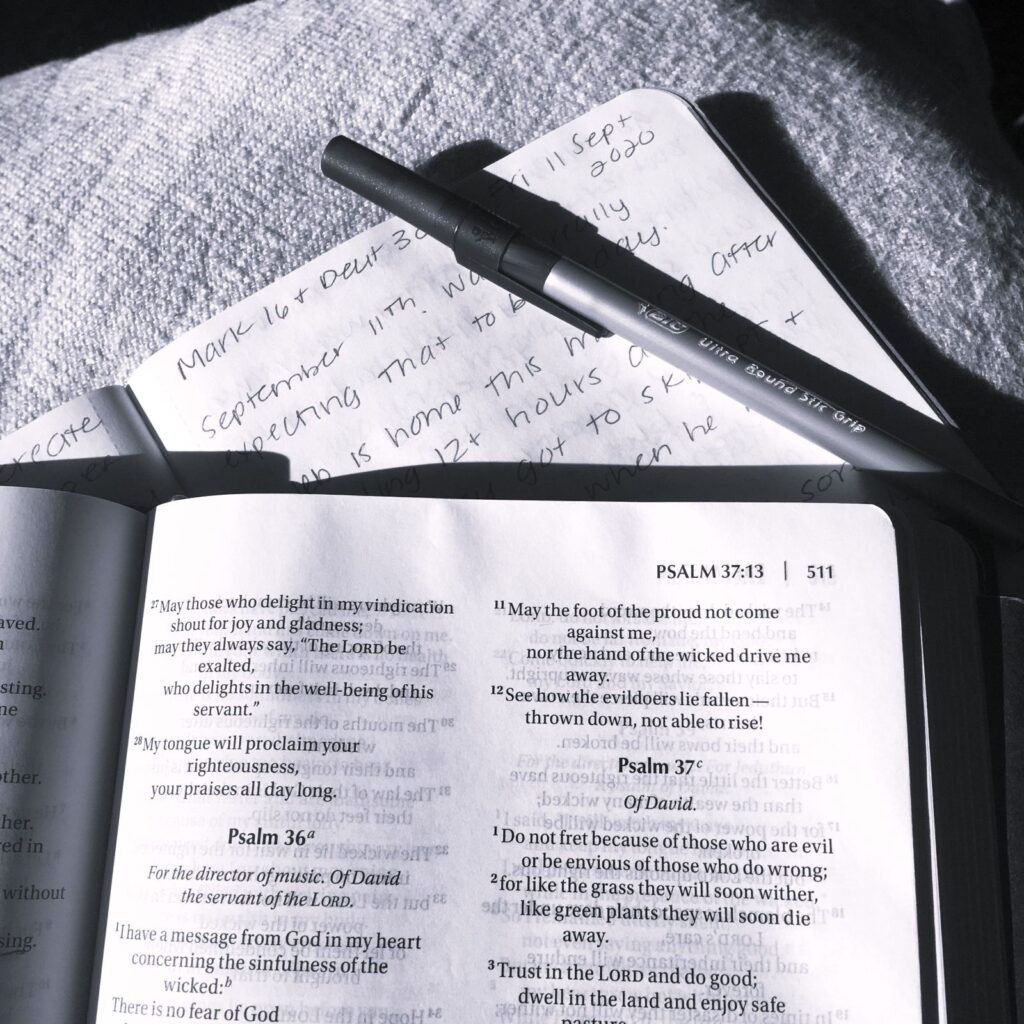 Fri 11 Sept
2020
Mark 16 + Deut 30
September 11th.
expecting that to day.
is home this after
12+ hours
got to +
when he
BIC Ultra Round Stic Grip
PSALM 37:13 | 511
27May those who delight in my vindication
shout for joy and gladness;
may they always say, “The LORD be
exalted,
who delights in the well-being of his
servant.”
28My tongue will proclaim your
righteousness,
your praises all day long.
Psalm 36a
For the director of music. Of David
the servant of the LORD.
1I have a message from God in my heart
concerning the sinfulness of the
wicked:b
There is no fear of God
11May the foot of the proud not come
against me,
nor the hand of the wicked drive me
away.
12See how the evildoers lie fallen—
thrown down, not able to rise!
Psalm 37c
Of David.
1Do not fret because of those who are evil
or be envious of those who do wrong;
2for like the grass they will soon wither,
like green plants they will soon die
away.
3Trust in the LORD and do good;
dwell in the land and enjoy safe
pasture.
without